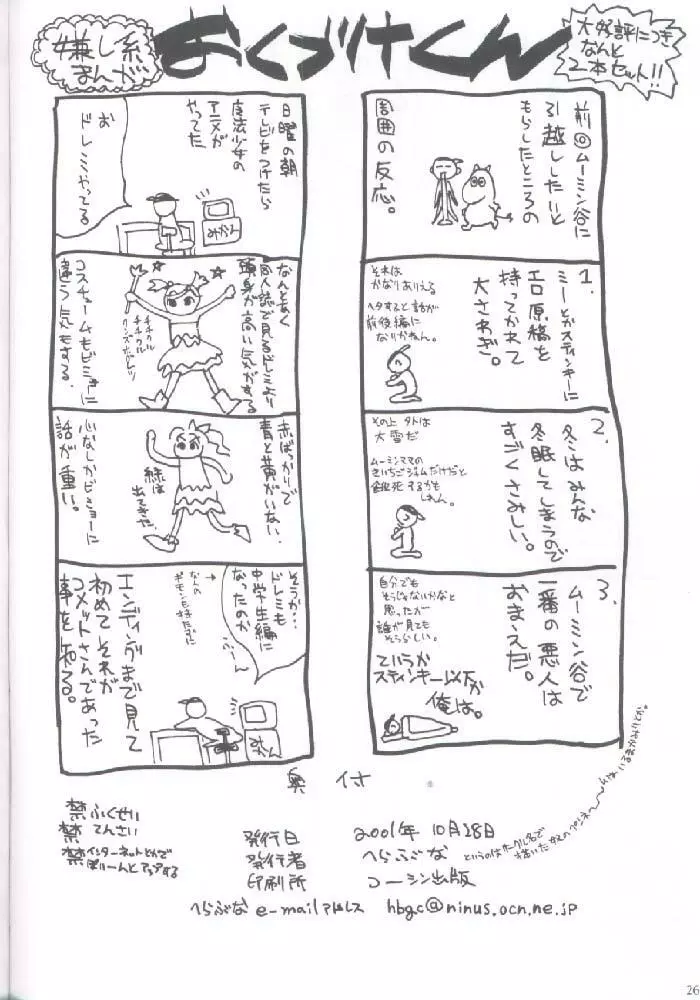 嫌し系
まんが
おくづけくん
大好評につき
なんと
2本セット!!
前回ムーミン谷に
引越ししたいと
もらしたところの
周囲の反応。
1.
ミーとかスティンキーに
エロ原稿を
持ってかれて
大さわぎ。
それは
かなりありえる
ヘタすると話が
前後編に
なりかねん。
2.
冬はみんな
冬眠してしまうので
すごくさみしい。
その上外は
大雪だ
ムーミンママの
きいちごジャムだけだと
餓死するかも
しれん。
3.
ムーミン谷で
一番の悪人は
おまえだ。
自分でも
そうじゃないかなと
思ったが
誰が見ても
そうらしい。
ていうか
スティンキー以下か
俺は。
日曜の朝
テレビをつけたら
魔法少女の
アニメが
やってた
お
ドレミやってる
みかん
なんとなく
同人誌で見るドレミより
頭身が高い気がする
コスチュームもビミョーに
違う気もする.
赤ばっかりで
青と黄がいない.
心なしかビミョーに
話が重い。
緑は
出てきた
そうか…
ドレミも
中学生編に
なったのか
ふーん
なんの
ギモンも持たずに
エンディングまで見て
初めてそれが
コメットさんであった
事を知る。
みかん
奥付
禁ふくせい
禁てんさい
禁インターネットとかで
ばりーんとアップする
発行日 2001年 10月28日
発行者 へらぶな
印刷所 コーシン出版
というのはサークル名で
描いた奴のペンネームは
へらぶな e-mailアドレス hbgc@ninus.ocn.ne.jp
26